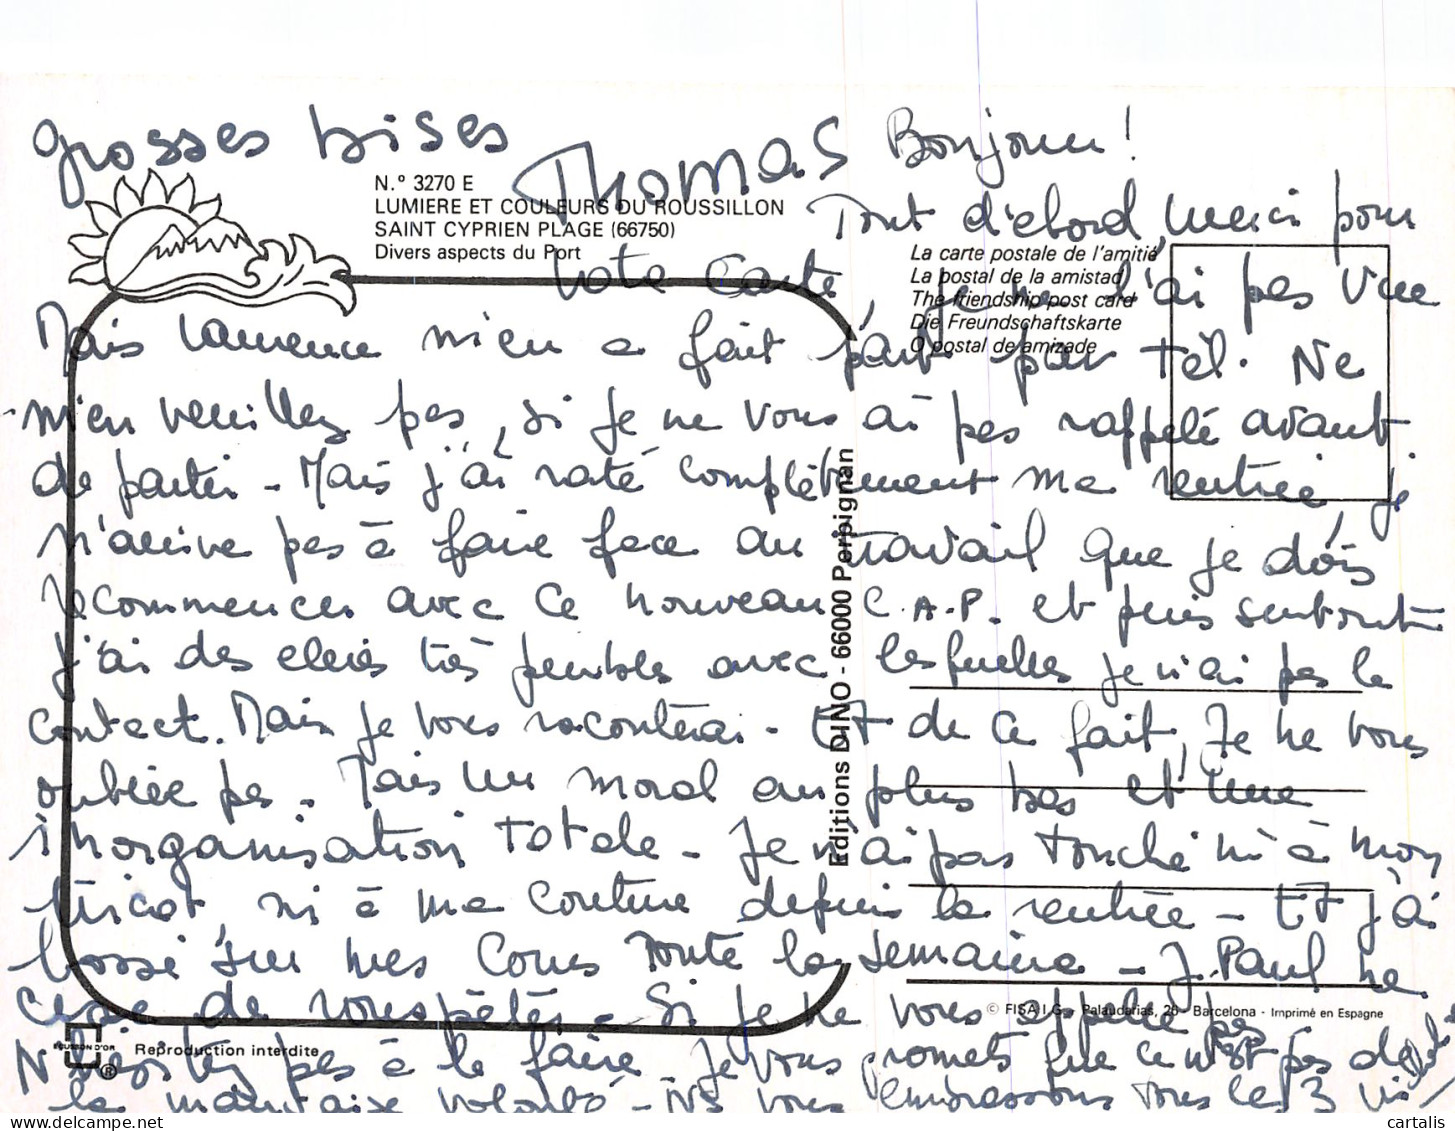 grosses bises
Thomas
Bonjour!
N.° 3270 E
LUMIERE ET COULEURS DU ROUSSILLON
SAINT CYPRIEN PLAGE (66750)
Divers aspects du Port
La carte postale de l'amitié
La postal de la amistad
The friendship post card
Die Freundschaftskarte
O postal de amizade
Tout d'abord, merci pour
vote carte, je ne l'ai pas vue
Mais Laurence m'en a fait part par tél. Ne
m'en veuillez pas, si je ne vous ai pas rappelé avant
de partir - Mais j'ai raté complètement ma rentrée, je
n'arrive pas à faire face au travail que je dois
recommencer avec ce nouveau C.A.P. et puis surtout
j'ai des élèves très pénibles avec lesquelles je n'ai pas le
contact. Mais je vous raconterai - ET de ce fait, Je ne vous
oublie pas. Mais un moral au plus bas et une
inorganisation totale - Je n'ai pas touché ni à mon
tricot, ni à ma couture depuis la rentrée - ET j'ai
bossé sur mes cours toute la semaine - J. Paul ne
cesse de vous - Si je ne vous appelle pas
N'hésitez pas à le faire - Je vous promets que ce n'est pas de
la mauvaise volonté - Ns vous embrassons tous les 3
Editions DINO - 66000 Perpignan
© FISA I.G. - Palaudarias, 26 - Barcelona - Imprimé en Espagne
ECUSSON D'OR
®
Reproduction interdite
cartalis